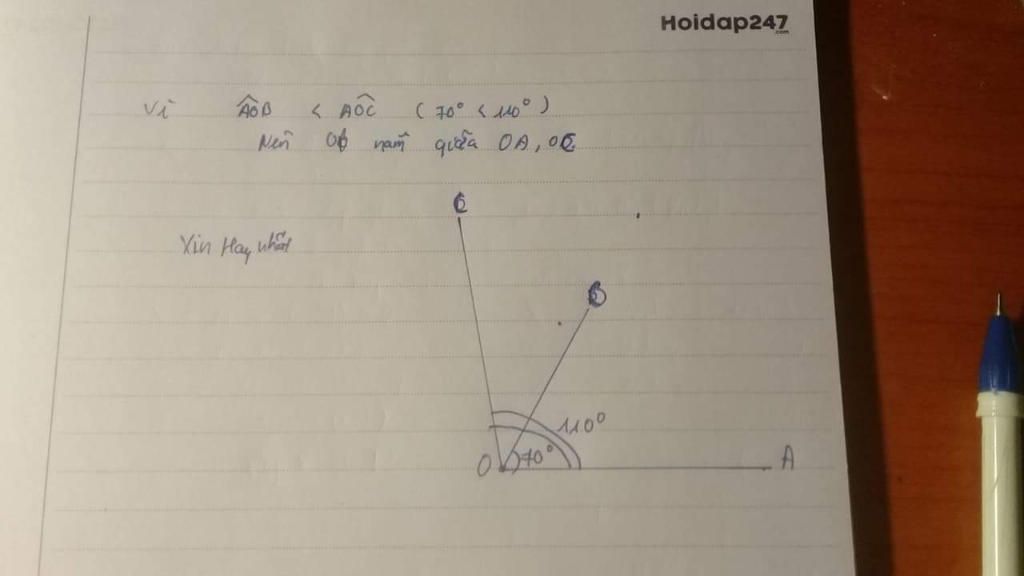 Hoidap247
.com
Vì AÔB < AÔC (70° < 110°)
Nên OB nằm giữa OA, OC
C
Xin Hay nhất
B
110°
O 70° A